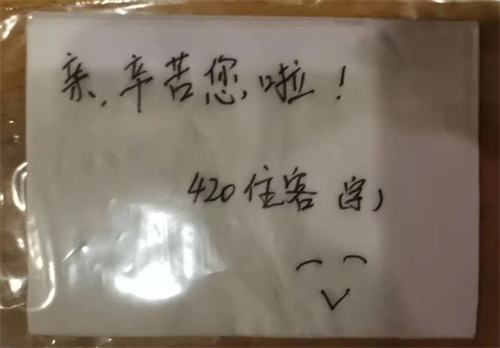 亲,辛苦您啦!
420住客(字)